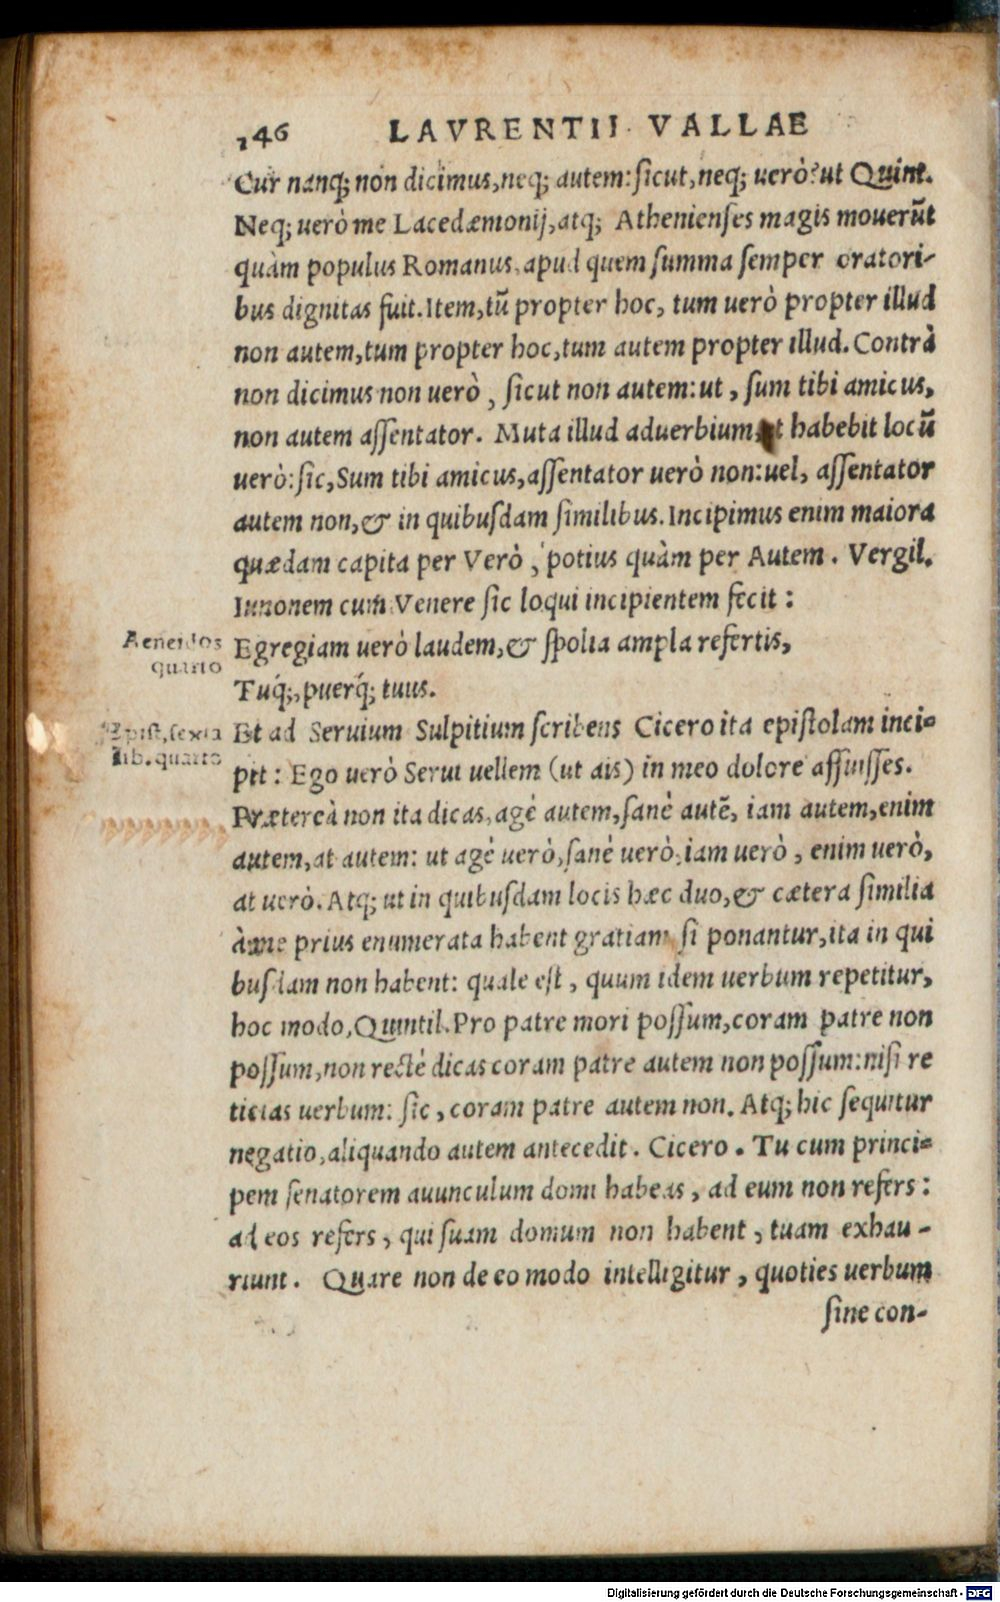 246 LAVRENTII VALLAE
Cur nanq; non dicimus, neq; autem: sicut, neq; uerò? ut Quint.
Neq; uerò me Lacedæmonij, atq; Athenienses magis mouerũt
quàm populus Romanus, apud quem summa semper oratori-
bus dignitas fuit. Item, tũ propter hoc, tum uerò propter illud
non autem, tum propter hoc, tum autem propter illud. Contrà
non dicimus non uerò, sicut non autem: ut, sum tibi amicus,
non autem assentator. Muta illud aduerbium, et habebit locũ
uerò: sic, Sum tibi amicus, assentator uerò non: uel, assentator
autem non, & in quibusdam similibus. Incipimus enim maiora
quædam capita per Verò, potius quàm per Autem. Vergil.
Iunonem cum Venere sic loqui incipientem fecit:
Aeneidos
quarto
Egregiam uerò laudem, & spolia ampla refertis,
Tuq́;, puerq́; tuus.
Epist, sexta
lib. quarto
Et ad Seruium Sulpitium scribens Cicero ita epistolam inci-
pit: Ego uerò Serui uellem (ut ais) in meo dolore affuisses.
Prætereà non ita dicas, agè autem, sanè autẽ, iam autem, enim
autem, at autem: ut agè uerò, sanè uerò, iam uerò, enim uerò,
at uerò. Atq; ut in quibusdam locis hæc duo, & cætera similia
à me prius enumerata habent gratiam si ponantur, ita in qui
busdam non habent: quale est, quum idem uerbum repetitur,
hoc modo, Quintil. Pro patre mori possum, coram patre non
possum, non rectè dicas coram patre autem non possum: nisi re
ticias uerbum: sic, coram patre autem non. Atq; hic sequitur
negatio, aliquando autem antecedit. Cicero. Tu cum princi-
pem senatorem auunculum domi habeas, ad eum non refers:
ad eos refers, qui suam domum non habent, tuam exhau-
riunt. Quare non de eo modo intelligitur, quoties uerbum
sine con-
Digitalisierung gefördert durch die Deutsche Forschungsgemeinschaft - DFG